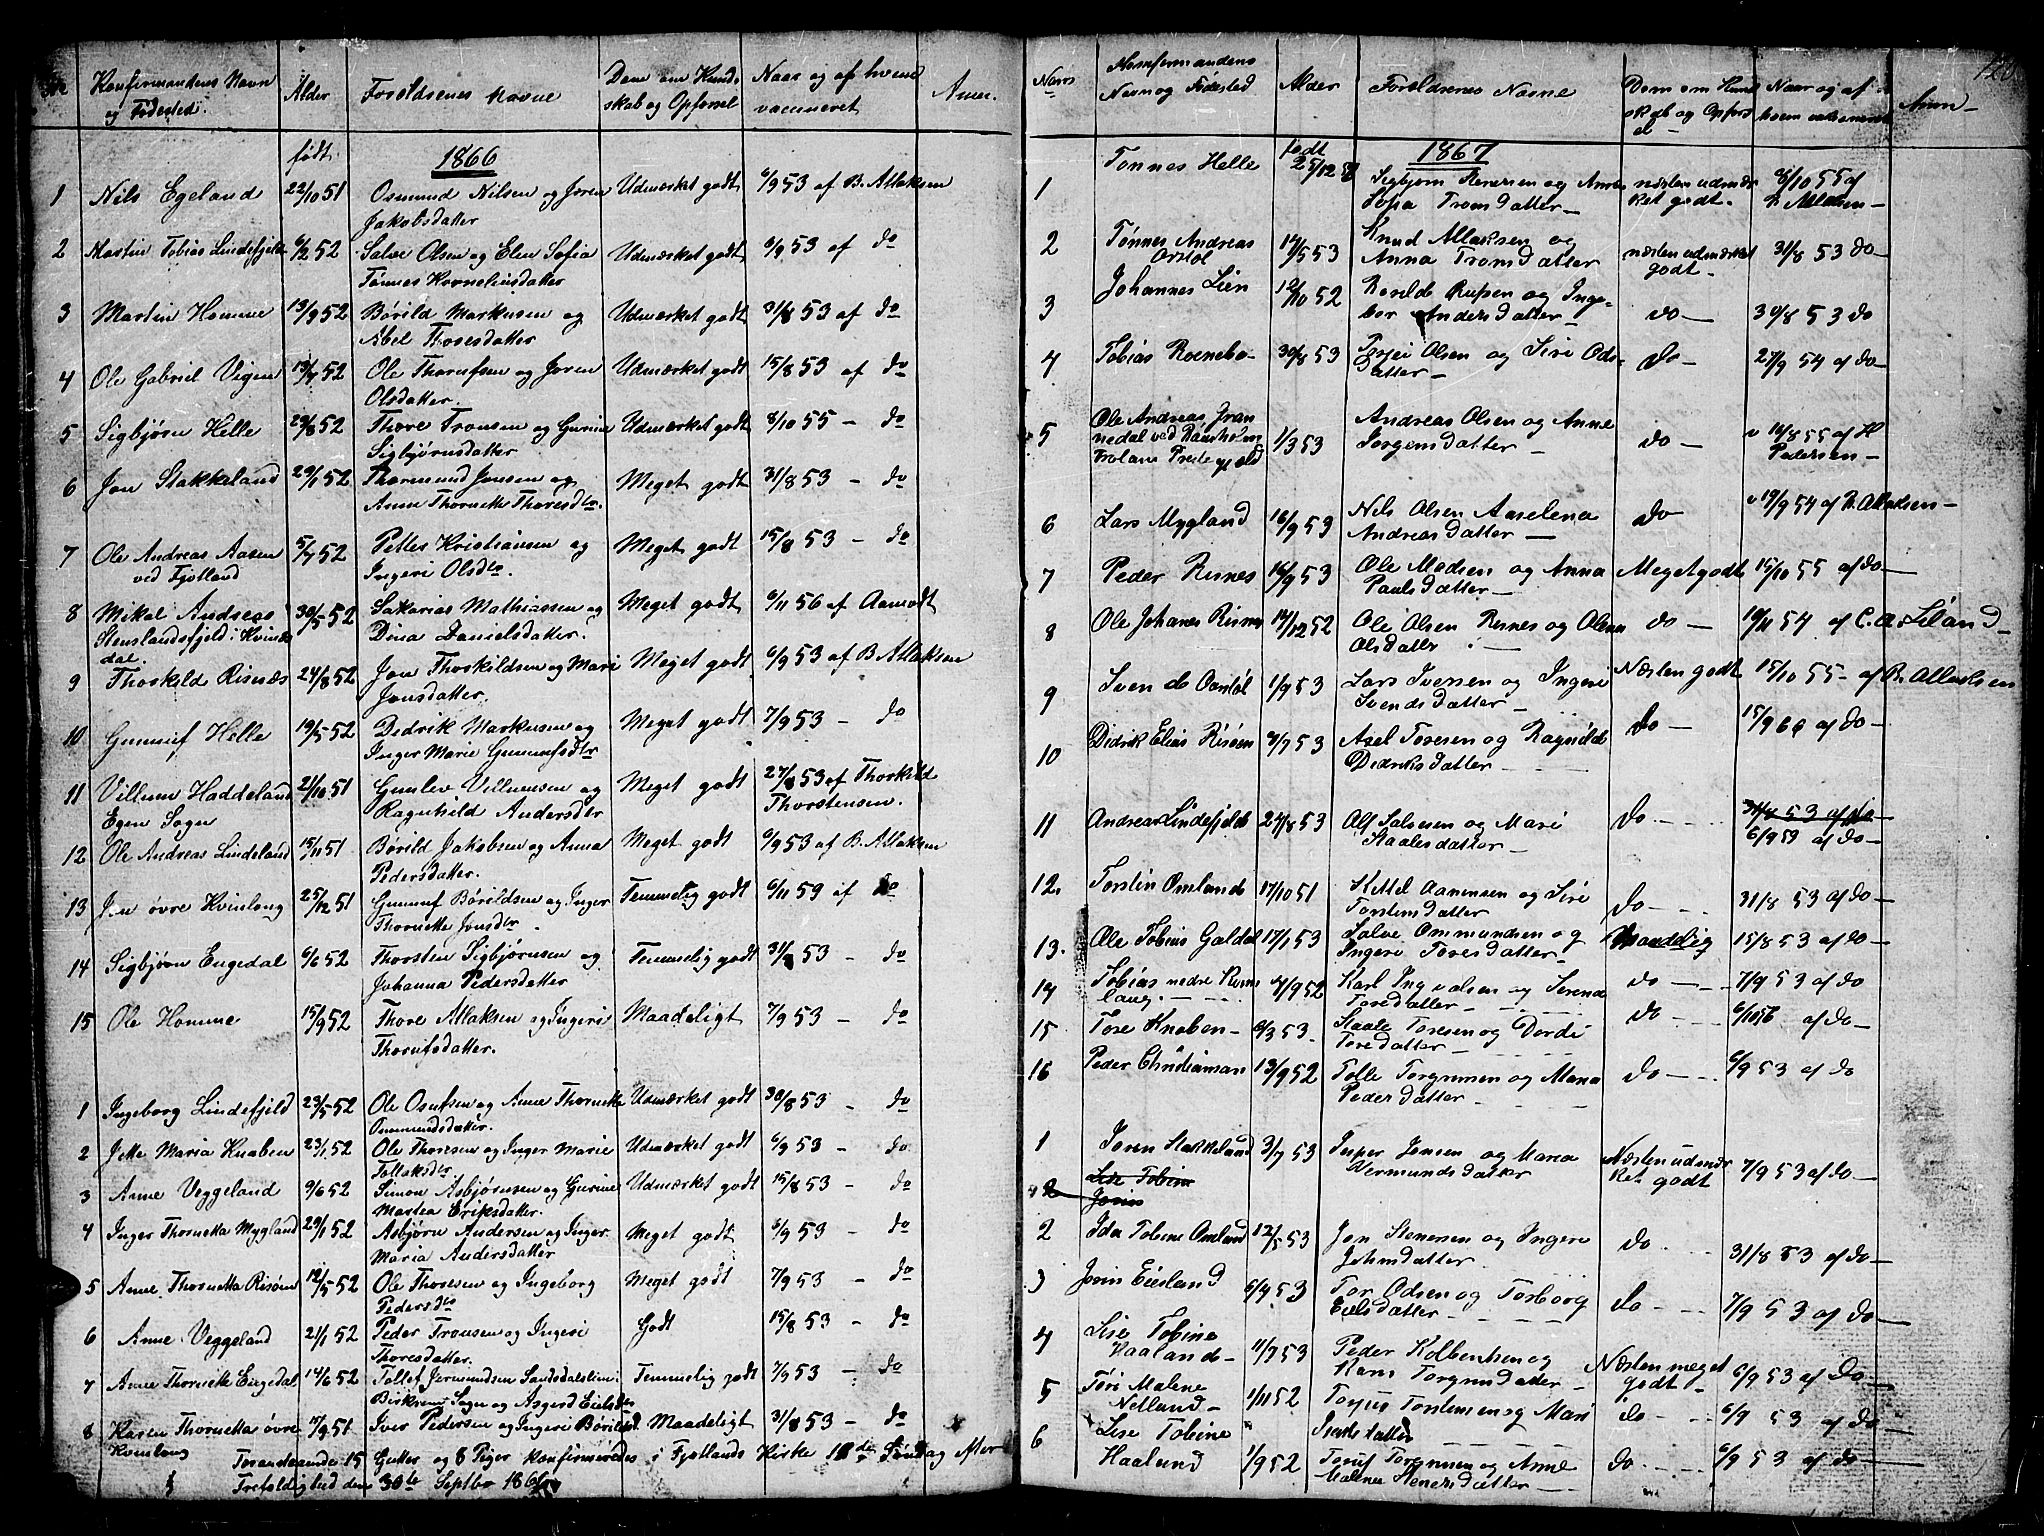 Konfirmandens Navn og Fødested. Alder Forældrenes Navne Dom om Kundskab og Opførsel Naar og af hvem vaccineret Anm.
født 1866
1 Nils Egeland 22/10 51 Osmund Nilsen og Joren Jakobsdatter Udmærket godt 6/9 53 af B. Atlaksen
2 Martin Tobias Lindefjeld 6/2 52 Salve Olsen og Elen Sofia Tønnes Korneliusdatter Udmærket godt 6/9 53 af do
3 Martin Homme 13/9 52 Børild Markusen og Abel Thoresdatter Udmærket godt 31/8 53 af do
4 Ole Gabriel Vigen 13/4 52 Ole Thorufsen og Joren Olsdatter. Udmærket godt 15/8 53 af do
5 Sigbjørn Helle 29/8 52 Thore Tronsen og Gurine Sigbjørnsdatter Udmærket godt 8/10 55 - do
6 Jon Stakkeland 29/1 52 Thormund Jonsen og Anne Thornette Thoresdtr. Meget godt 31/8 53 - do
7 Ole Andreas Aasen ved Fjotland 5/7 52 Petter Kristiansen og Ingeri Olsdtr. Meget godt 15/8 53 - do
8 Mikal Andreas Stenslandsfjeld i Kvinesdal. 30/5 52 Sakarias Mathiassen og Dina Danielsdatter. Meget godt 6/11 56 af Aamodt
9 Thorkild Risnæs 24/8 52 Jon Thorkildsen og Mari Jonsdatter. Meget godt 6/9 53 af B. Atlaksen
10 Gunnuf Helle 19/5 52 Didrik Markusen og Inger Marie Gunnufsdtr Meget godt 7/9 53 - do
11 Villum Haddeland Egen Sogn 21/10 51 Gunlev Villumsen og Ragnhild Andersdtr Meget godt 27/8 53 af Thorkild Thorstensen.
12 Ole Andreas Lindeland 15/11 51 Børild Jakobsen og Anna Pedersdatter. Meget godt 6/9 53 af B. Atlaksen
13 Jon øvre Kvinlong 25/12 51 Gunnuf Børildsen og Inger Thornette Jonsdtr. Temmelig godt 6/11 59 af do
14 Sigbjørn Eugedal 6/6 52 Thorsten Sigbjørnsen og Johanna Pedersdatter Temmelig godt 31/8 53 - do
15 Ole Homme 15/9 52 Thore Atlaksen og Ingeri Thorufsdatter. Maadeligt 7/9 53 - do
1 Ingeborg Lindefjeld 23/5 52 Ole Osufsen og Anne Thornette Ommundsdatter. Udmærket godt 30/8 53 - do
2 Jette Maria Knaben 23/1 52 Ole Thoresen og Inger Marie Tollaksdtr Udmærket godt 6/9 53 - do
3 Anne Veggeland 9/6 52 Simon Asbjørnsen og Gurine Martea Eriksdatter. Udmærket godt 15/8 53 - do
4 Inger Thornetta Mygland 29/1 52 Asbjørn Andersen og Inger Maria Andersdatter Meget godt 6/9 53 - do
5 Anne Thornetta Risøen 12/5 52 Ole Thoresen og Ingeborg Pedersdtr Meget godt 7/9 53 - do
6 Anne Veggeland 21/1 52 Peder Tronsen og Ingeri Thoresdatter. Godt 15/8 53 - do
7 Anne Thornette Eugedal 14/6 52 Tollef Jermundsen Sandsdalstein Birkenes Sogn og Asgerd Eielsdtr Temmelig godt 7/9 53 - do
8 Karen Thornetta øvre Kvinlong 15/9 51 Iver Pedersen og Ingeri Børildsd. Maadeligt 31/8 53 - do
Foranstaaende 15 Gutter og 8 Piger konfirmeredes i Fjotlands Kirke 18de Søndag efter
Trefoldighed den 30te Septbr 1866
Navn Konfirmandens Navn og Fødested Alder Forældrenes Navne Dom om Kundskab og Opførsel Naar og af hvem vaksineret Anm-
født 1867
1 Tønnes Helle 25/12 5 Sigbjørn Renersen og Anne Sofia Tronsdatter næsten udmærket godt. 8/10 55 af B. Atlaksen
2 Tønnes Andreas Orstøl 14/5 53 Knud Atlaksen og Anna Tronsdatter næsten udmærket godt 31/8 53 do
3 Johannes Lien 12/10 52 Roveld Rufsen og Ingebor Andersdatter do 30/8 53 do
4 Tobias Roenebo 30/8 53 Terjei Olsen og Siri Odsdatter do 27/9 54 af do
5 Ole Andreas Grannedal ved Baasholm Froland Prestegjæld 1/3 53 Andreas Olsen og Anne Jorgensdatter do v 16/8 55 af H Pedersen
6 Lars Mygland 16/9 53 Nils Olsen Aaselena Andreasdatter do v 19/9 54 af B. Atlaksen
7 Peder Risnes 16/9 53 Ole Madsen og Anna Paulsdatter Meget godt 15/10 55 af do
8 Ole Johanes Risnes 14/12 52 Ole Olsen Risnes og Olena Olsdatter do 10/11 54 af C. A. Liland
9 Sven do Oastøl 1/9 53 Lars Iversen og Ingeri Svendsdatter Næsten godt 15/10 55 af B. Atlaksen
10 Didrik Elias Risøen 9/7 53 Axel Toresen og Ragnild Didriksdatter do 15/9 66 af do
11 Andreas Lindefjeld 27/8 53 Alf Salvesen og Mari Staalesdatter do 31/8 53 af do
6/9 53 af do
12. Torstin Omland 17/10 51 Kittel Aanensen og Siri Torstensdatter do 31/8 53 af do
13. Ole Tobias Galdal 17/1 53 Salve Ommundsen og Ingeri Toresdatter Maadelig 15/8 53 af do
14 Tobias nedre Kvinlaug. 4/9 52 Karl Ingvalsen og Serena Toredatter do 7/9 53 af do
15 Tore Knaben 8/3 53 Staale Toresen og Dordi Toredatter do 6/10 56 af do
16 Peder Christiansen 13/9 52 Tolle Torgrimsen og Maria Pedersdatter do 6/9 53 af do
1 Joren Stakkeland 3/7 53 Jesper Jensen og Maria Vermundsdatter Næsten udmærket godt 7/9 53 af do
2 Lise Tobine Jorin
2 Ida Tobine Omland 12/5 53 Jon Stenersen og Ingeri Johnsdatter do 31/8 53 af do
3 Jorin Eiesland 6/4 53 Tor Odsen og Torborg Eielsdatter do 7/9 53 af do
4 Lise Tobine Haaland 11/7 53 Peder Kolbensen og Karn Torgrimsdatter Næsten meget godt 6/9 53 af do
5 Tori Malene Netland 1/11 52 Torjus Torstensen og Mari Isaksdatter do 6/9 53 af do
6 Lise Tobine Haaland 1/9 52 Toruf Torgrimsen og Anne Malene Stenersdatter do 6/9 53 af do